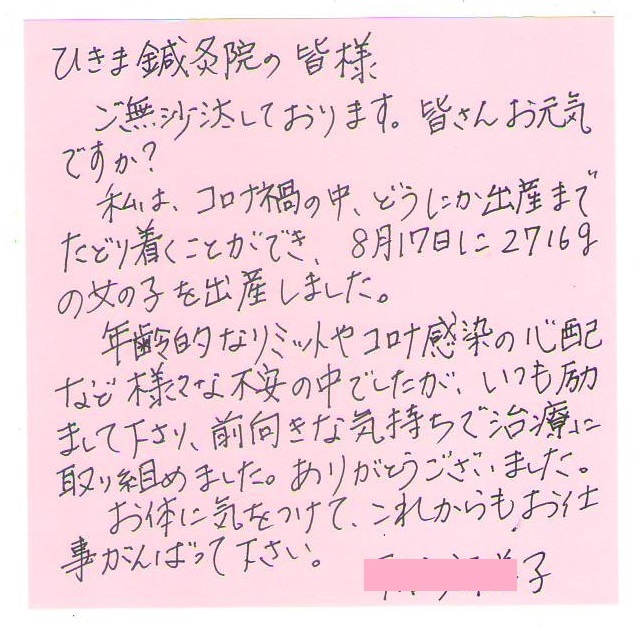 ひきま鍼灸院の皆様
ご無沙汰しております。皆さんお元気
ですか?
私は、コロナ禍の中、どうにか出産まで
たどり着くことができ、8月17日に2716g
の女の子を出産しました。
年齢的なリミットやコロナ感染の心配
など様々な不安の中でしたが、いつも励
まして下さり、前向きな気持ちで治療に
取り組めました。ありがとうございました。
お体に気をつけて、これからもお仕
事がんばって下さい。
子